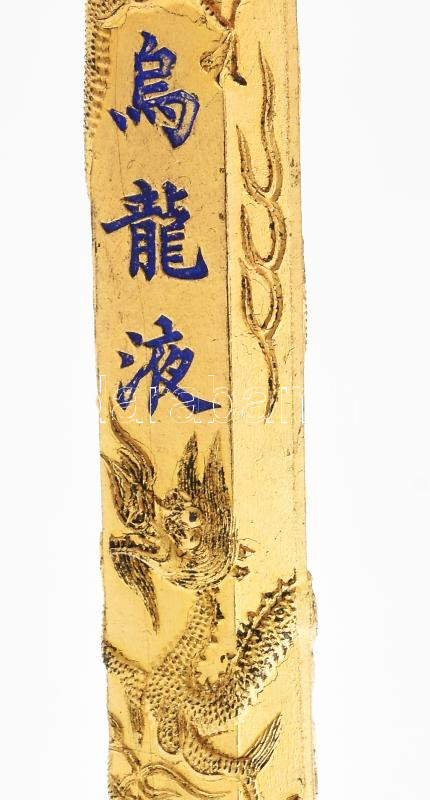 烏龍液
darabanth